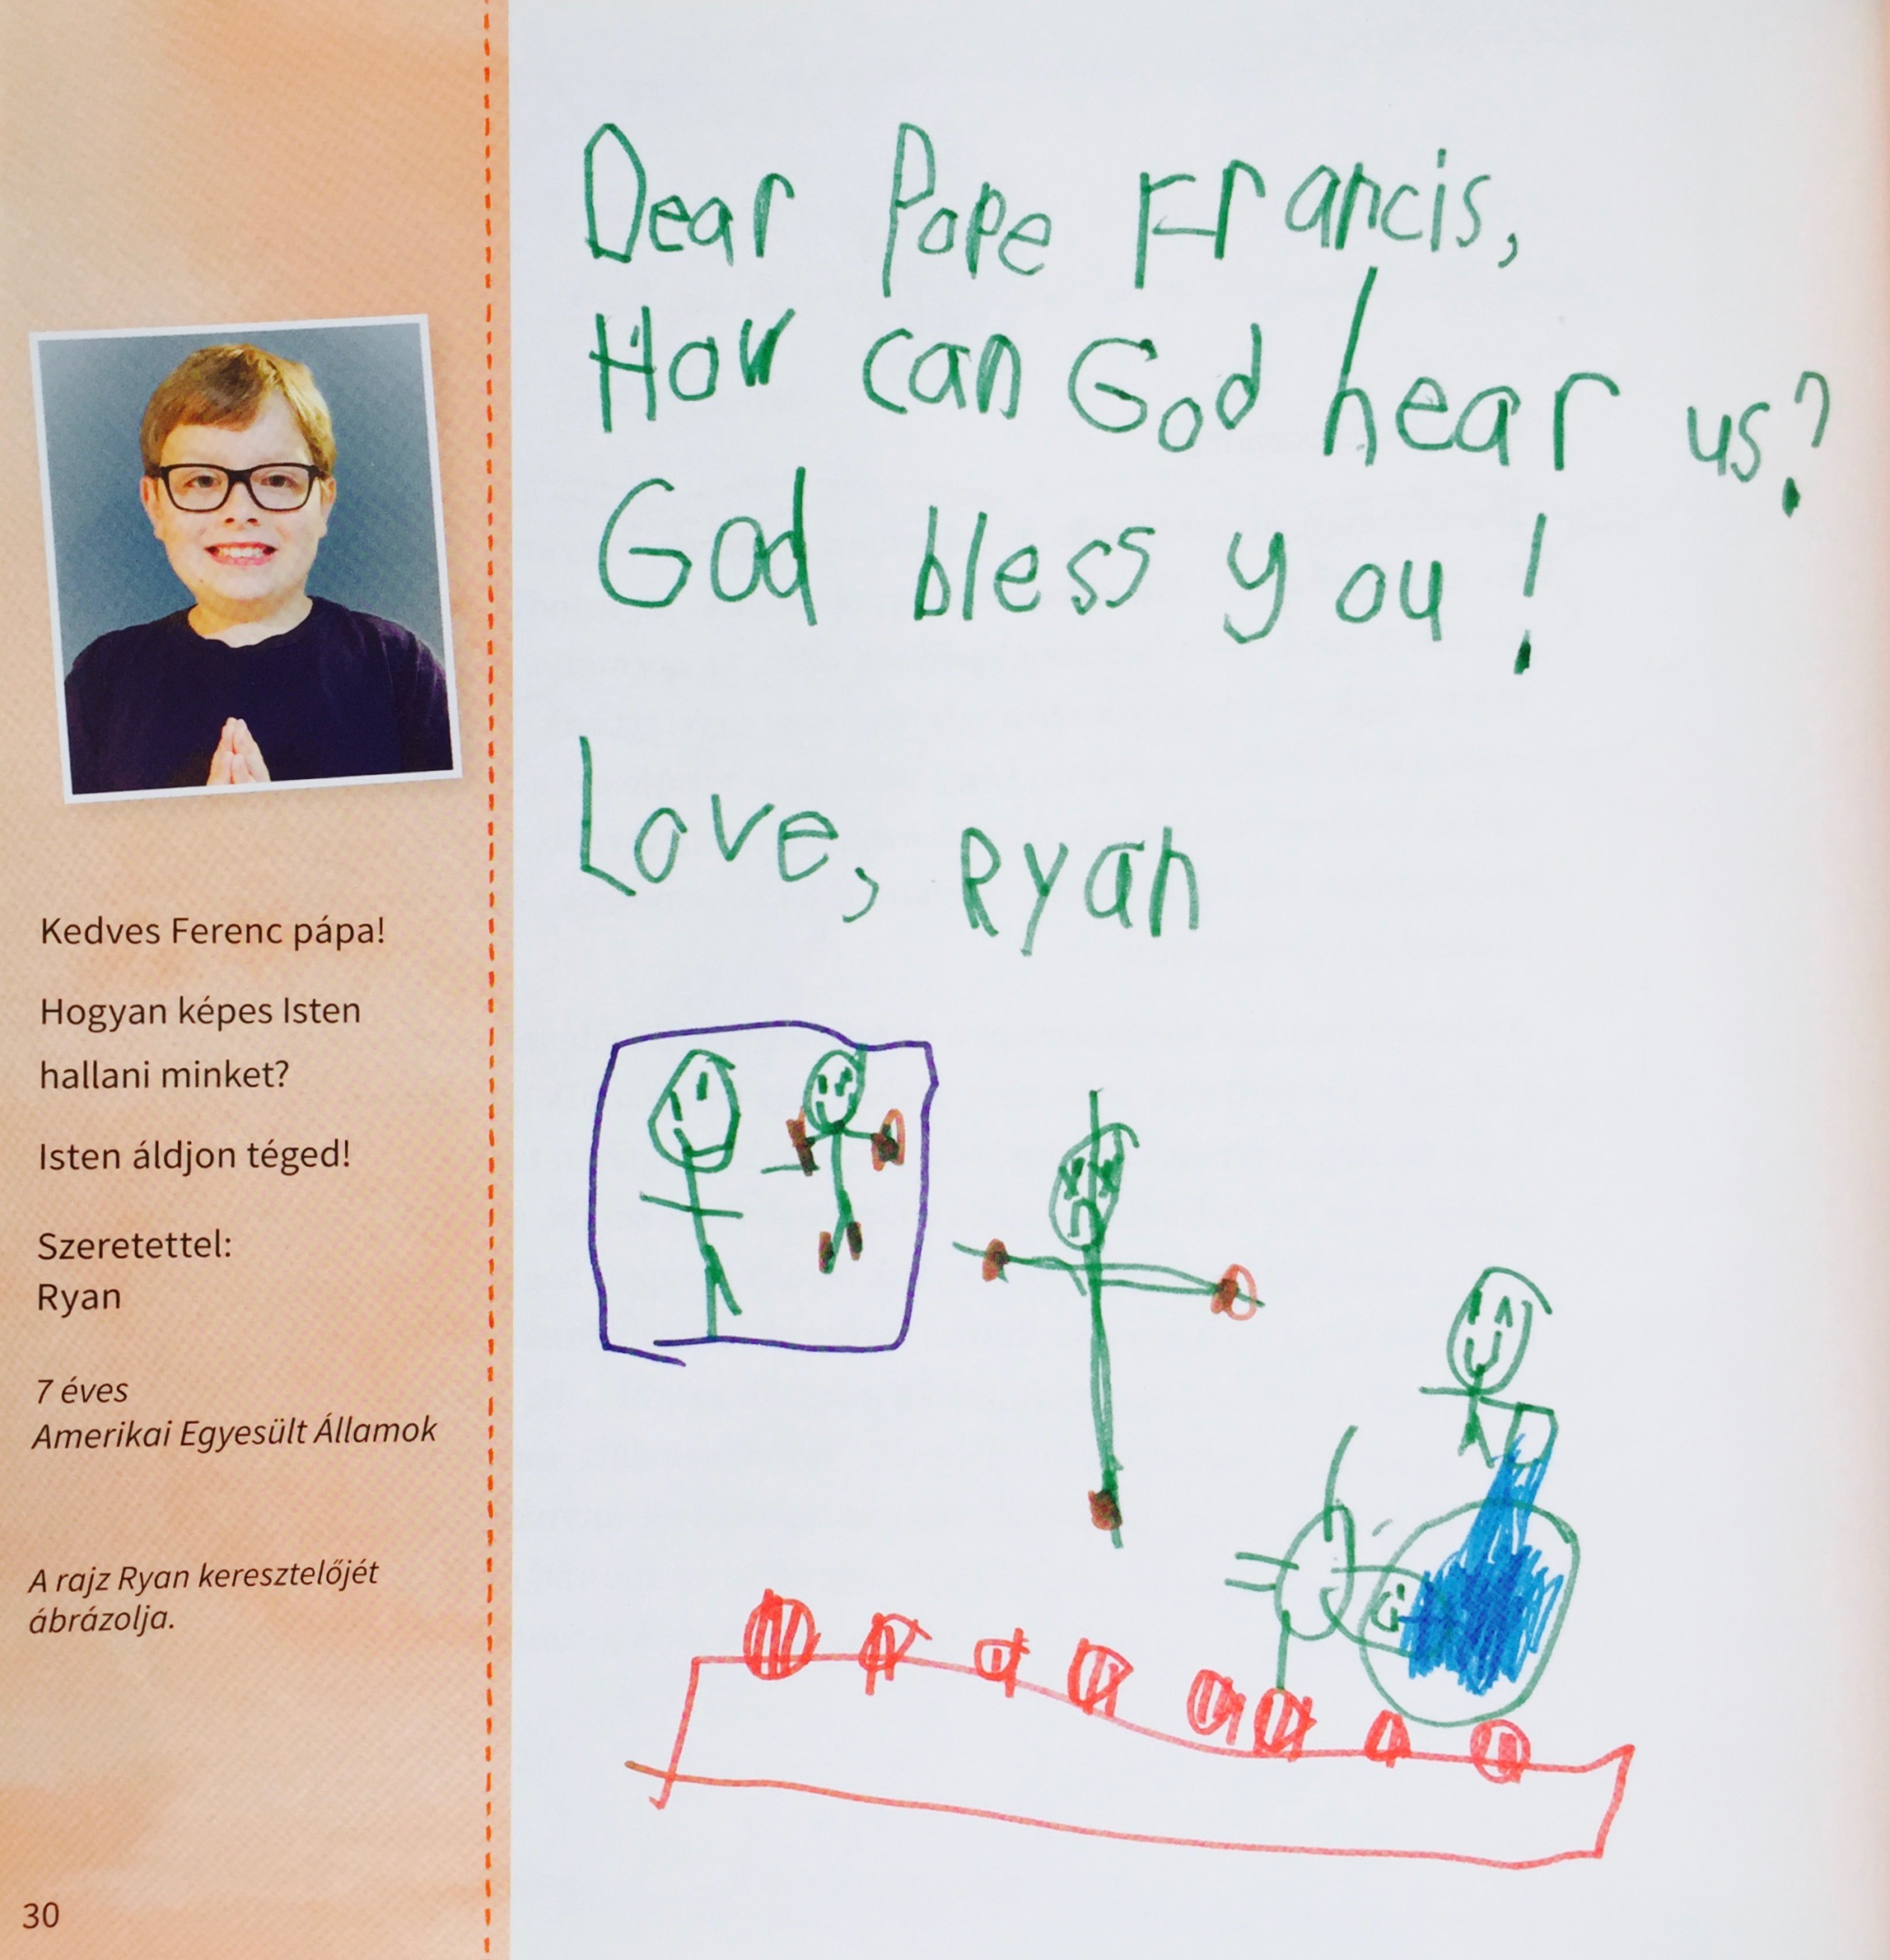 Dear Pope Francis,
How can God hear us?
God bless you!
Love, Ryan
Kedves Ferenc pápa!
Hogyan képes Isten
hallani minket?
Isten áldjon téged!
Szeretettel:
Ryan
7 éves
Amerikai Egyesült Államok
A rajz Ryan keresztelőjét
ábrázolja.
30